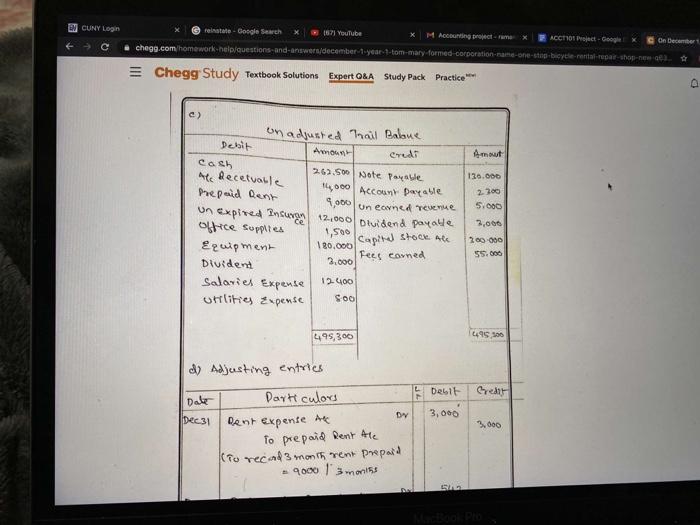 CUNY Login
reinstate - Google Search
(67) YouTube
Accounting project - rama
ACCT101 Project - Google
On December 1
chegg.com/homework-help/questions-and-answers/december-1-year-1-tom-mary-formed-corporation-name-one-stop-bicycle-rental-repair-shop-new-q63...
Chegg Study Textbook Solutions Expert Q&A Study Pack Practice NEW!
c)
Unadjusted Trail Balance
Debit Amount Credi Amout
Cash 262,500 Note Payable 130.000
A/c Receivable 14,000 Account Payable 2300
Prepaid Rent 9,000 Unearned revenue 5,000
Un Expired Insurance 12,000 Dividend payable 3,000
Office Supplies 1,500 Capital Stock A/c 300.000
Equipment 180,000 Fees earned 55.000
Dividend 3,000
Salaries Expense 12400
Utilities Expense 800
495,300 495,300
d) Adjusting entries
Date Particulars LF Debit Credit
Dec31 Rent Expense A/c Dr 3,000
To prepaid Rent A/c 3,000
(To record 3 month rent prepaid
= 9000 / 3 months
MacBook Pro